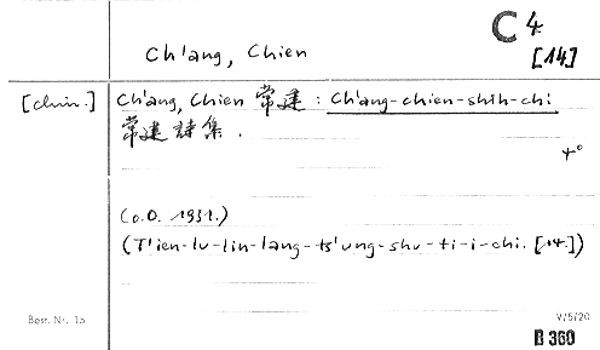 C 4
Ch'ang, Chien
[14]
[chin.] Ch'ang, Chien 常建 : Ch'ang-chien-shih-chi
常建詩集.
4°
(o.O. 1931.)
(T'ien-lu-lin-lang-ts'ung-shu-ti-i-chi. [14.])
Best. Nr. 15
V/5/20
B 360